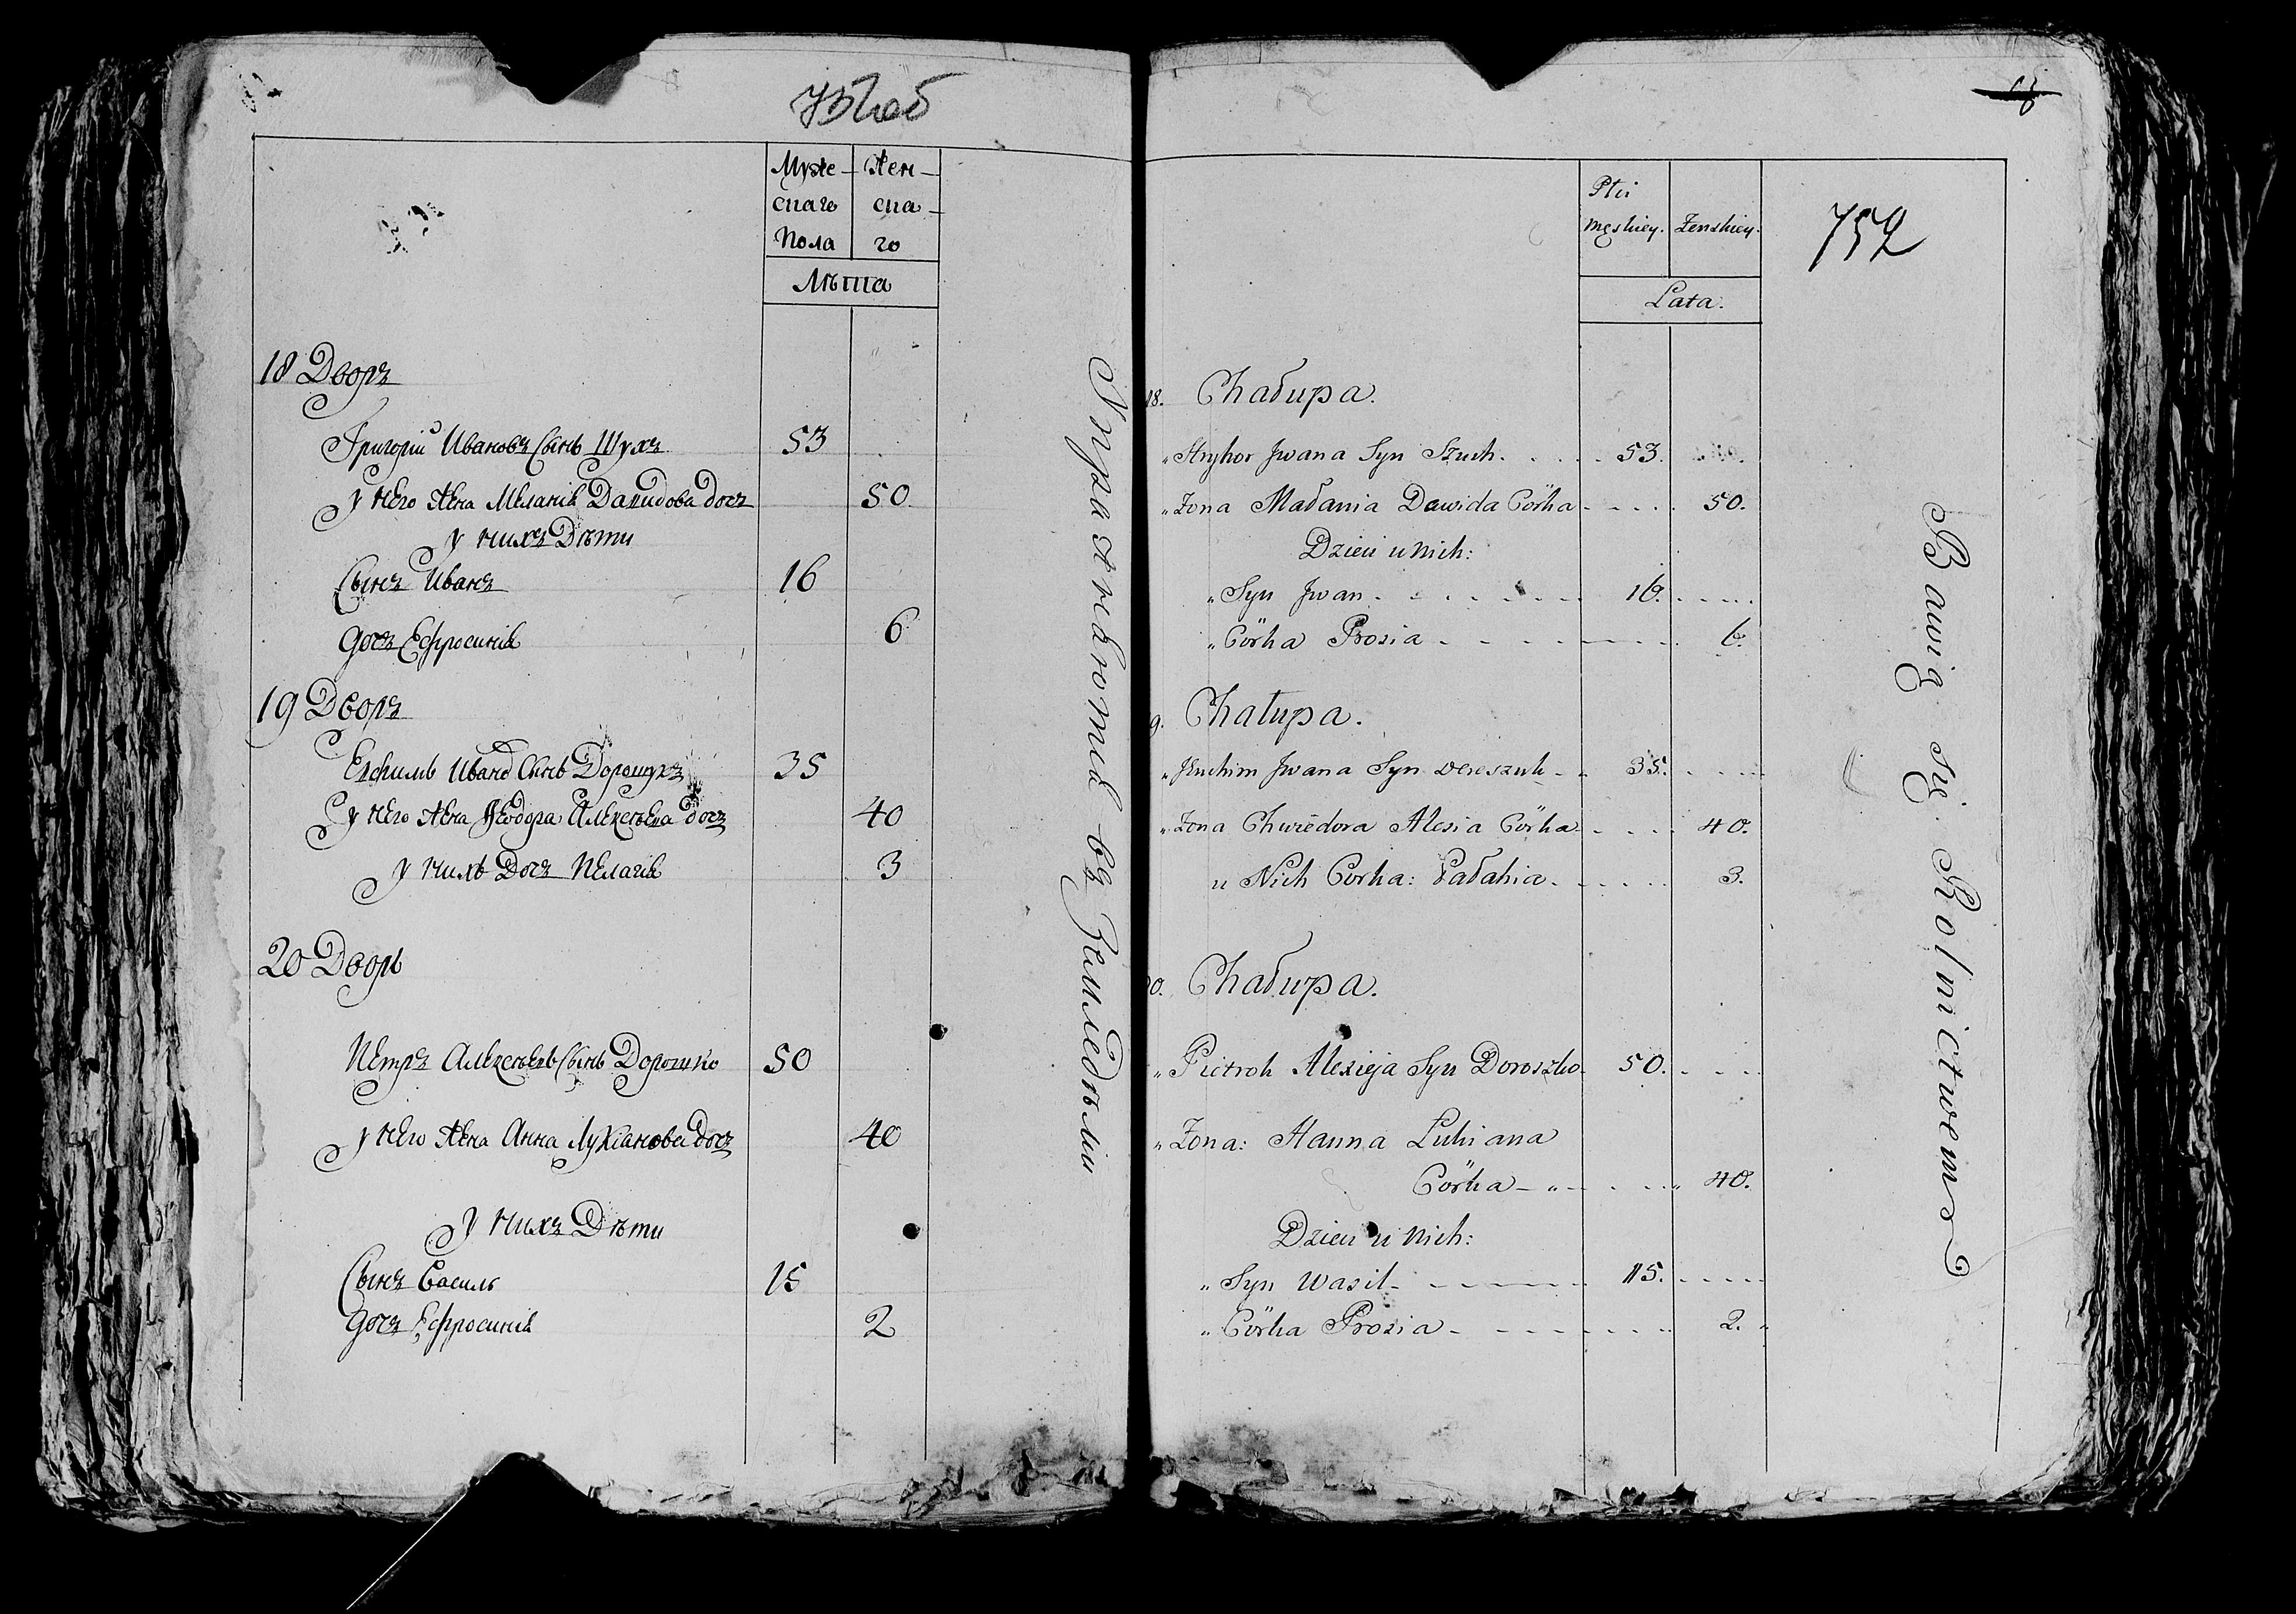 751об
Муже- Жен-
скаго ска-
Пола го
Лѣта
18 Дворъ
Григорій Ивановъ Сынъ Шухъ 53
у него жена Меланія Давидова дочъ 50
у нихъ Дѣти
Сынъ Иванъ 16
дочъ Ефросинія 6
19 Дворъ
Евхимъ Иванов Сынъ Дорошукъ 35
у него жена Феодора Алексѣева дочъ 40
у нихъ Дочъ Пелагія 3
20 Дворъ
Петръ Алексѣевъ Сынъ Дорошко 50
у него жена Анна Лукіанова дочъ 40
у нихъ Дѣти
Сынъ Василь 15
дочъ Ефросинія 2
Упражнено въ Земледѣліи
Płci
męskiey. Żenskiey.
Lata.
752
18. Chałupa.
„ Hryhor Jwana Syn Szuch. 53.
„ Żona Małania Dawida Córka 50.
Dzieci u Nich:
„ Syn Jwan 16.
„ Córka Prosia 6.
9. Chałupa.
„ Jeuchim Jwana Syn Doroszuk 35.
„ Żona Chwiedora Alesia Córka 40.
u Nich Corka: Pałahia 3.
0. Chałupa.
„ Pietroh Alexieja Syn Doroszko 50.
„ Żona: Hanna Lukiana
Córka „ 40.
Dzieci u Nich:
„ Syn Wasil 15.
„ Córka Prosia 2.
Bawią się Rolnictwem